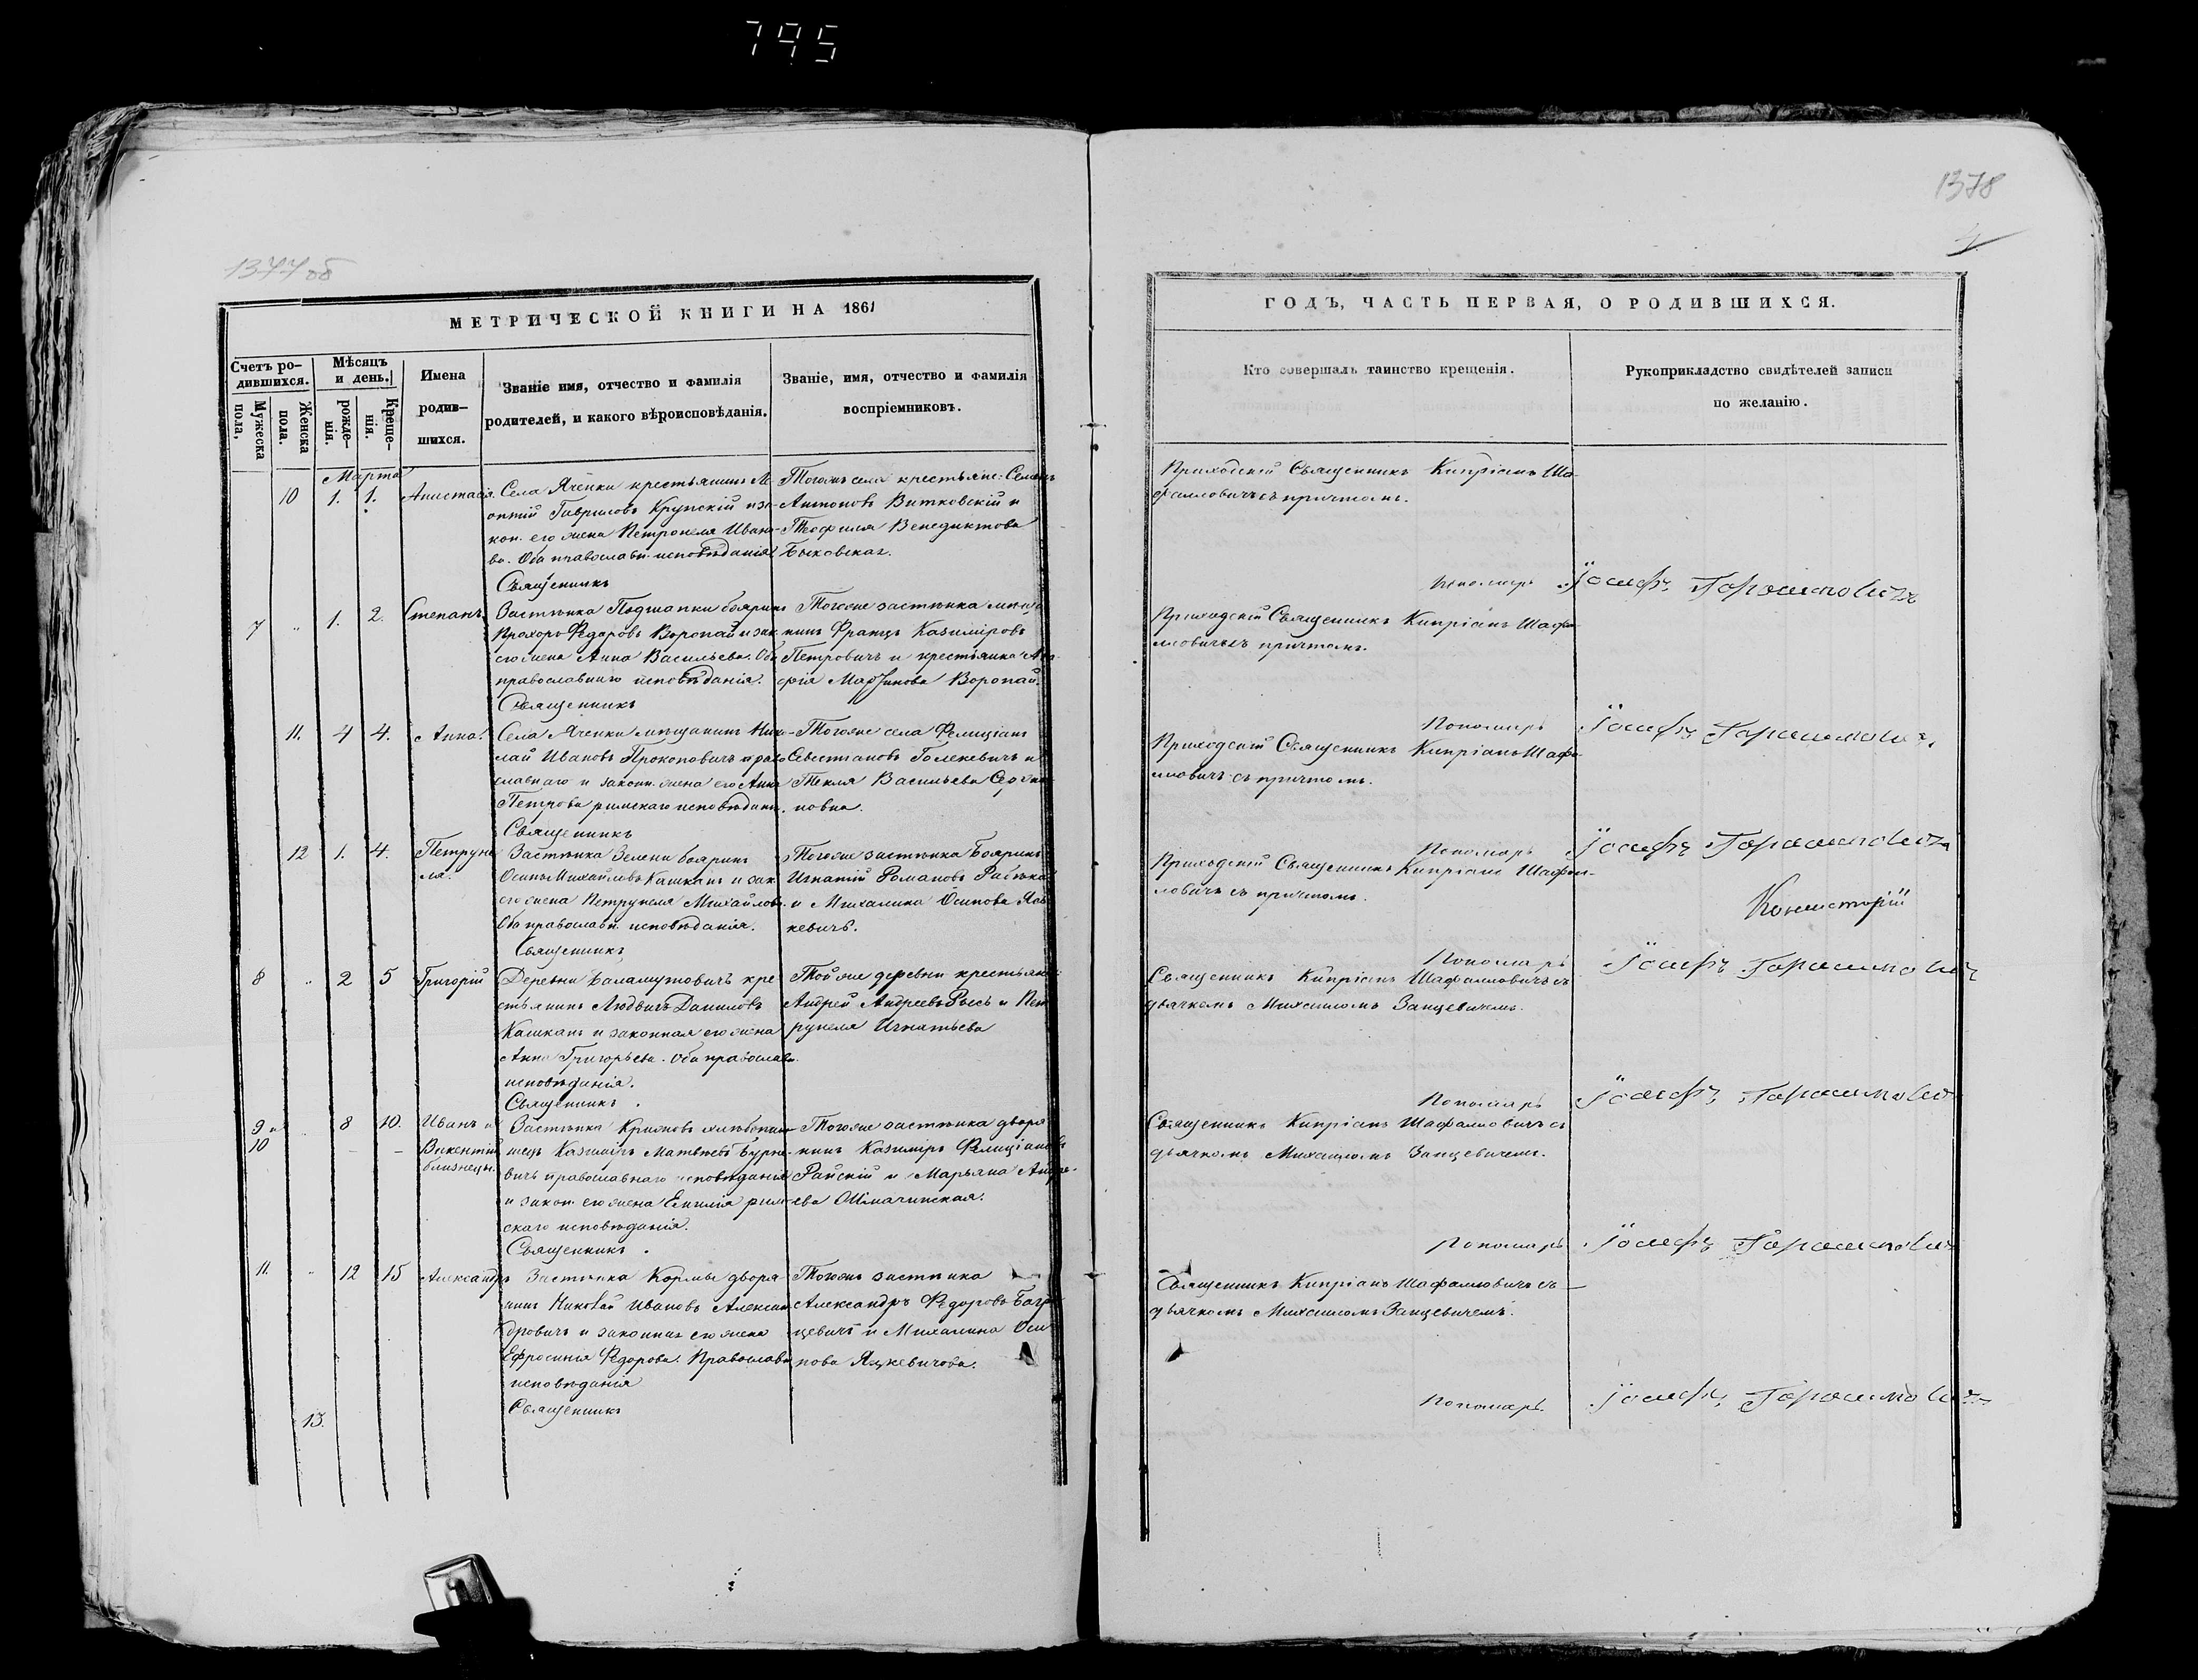 795
1378
4
1377 об
МЕТРИЧЕСКОЙ КНИГИ НА 1861
Счетъ ро-
дившихся.
Мѣсяцъ
и день.
Имена
родив-
шихся.
Званіе имя, отчество и фамилія
родителей, и какого вѣроисповѣданія.
Званіе, имя, отчество и фамилія
воспріемниковъ.
Мужеска
пола,
Женска
пола.
рожде-
нія.
Креще-
нія.
Марта
10 1. 1. Анистасія.
Села Яченки крестьянинъ Ле-
онтій Гавриловъ Крупскій и за-
кон. его жена Петронеля Ивано-
ва. Оба православн. исповѣданія
Священникъ
Тогожъ села крестьяне: Семенъ
Антоновъ Витковскій и
Теофиля Венедиктова
Быковская.
7 " 1. 2. Степанъ
Застѣнка Подшапки бояринъ
Прохоръ Федоровъ Воропай и зак
его жена Анна Васильева. Оба
православнаго исповѣданія.
Священникъ
Тогоже застѣнка
нинъ Францъ Казиміровъ
Петровичъ и крестьянка
Мартинова Воропай.
11. 4 4. Анна.
Села Яченки мѣщанинъ Нико-
лай Ивановъ Прокоповичъ право
славнаго и законн. жена его Анна
Петрова римскаго исповѣдани.
Священникъ
Тогоже села Фелиціанъ
Севестіановъ Голекевичъ и
Текля Васильева
новна.
12 1. 4. Петруне
ля.
Застѣнка Зелени бояринъ
Осипъ Михайловъ Кашканъ и зак
его жена Петрунеля Михайлов.
Оба православн. исповѣданія.
Священникъ
Тогоже застѣнка Бояринъ
Игнатій Романовъ
и Михалина Осипова Яц
кевичъ.
8 " 2 5 Григорій
Деревни Баламутовичъ кре
стьянинъ Людвигъ Даниловъ
Кашканъ и законная его жена
Анна Григорьева. Оба православн.
исповѣданія.
Священникъ.
Той же деревни крестьяне
Андрей Андреевъ Рысь и Пет
рунеля Игнатьева
9 и
10
8 10. Иванъ и
Викентій
близнецы.
Застѣнка хлѣбопаш
мецъ Казиміръ Матвѣевъ
вичъ православнаго исповѣданія
и закон. его жена Емилія рим
скаго исповѣданія.
Священникъ.
Тогоже застѣнка дворя
нинъ Казиміръ Фелиціановъ
Райскій и Марьяна Андре-
ева
11. " 12 15 Александръ
Застѣнка Кормы дворя
нинъ Николай Ивановъ Алексан
дровичъ и законная его жена
Ефросинія Федорова. Православн
исповѣданія
Священникъ
Тогожъ застѣнка
Александръ Федоровъ
цевичъ и Михалина Оси
пова Яцкевичова.
13.
ГОДЪ, ЧАСТЬ ПЕРВАЯ, О РОДИВШИХСЯ.
Кто совершалъ таинство крещенія.
Рукоприкладство свидѣтелей записи
по желанію.
Приходскій Священникъ Кипріанъ Ша-
фаловичъ съ причтомъ.
Пономарь Іосифъ Гарасимовичъ
Приходскій Священникъ Кипріанъ Шафа-
ловичъ съ причтомъ.
Пономарь Іосифъ Гарасимовичъ
Приходскій Священникъ Кипріанъ Шафа-
ловичъ съ причтомъ.
Пономарь Іосифъ Гарасимовичъ
Приходскій Священникъ Кипріанъ Шафа-
ловичъ съ причтомъ.
Консисторіи
Пономарь Іосифъ Гарасимовичъ
Священникъ Кипріанъ Шафаловичъ съ
дьячкомъ Михаиломъ Занцевичемъ.
Пономарь Іосифъ Гарасимовичъ
Священникъ Кипріанъ Шафаловичъ съ
дьячкомъ Михаиломъ Занцевичемъ.
Пономарь Іосифъ Гарасимовичъ
Священникъ Кипріанъ Шафаловичъ съ
дьячкомъ Михаиломъ Занцевичемъ.
Пономарь. Іосифъ Гарасимовичъ